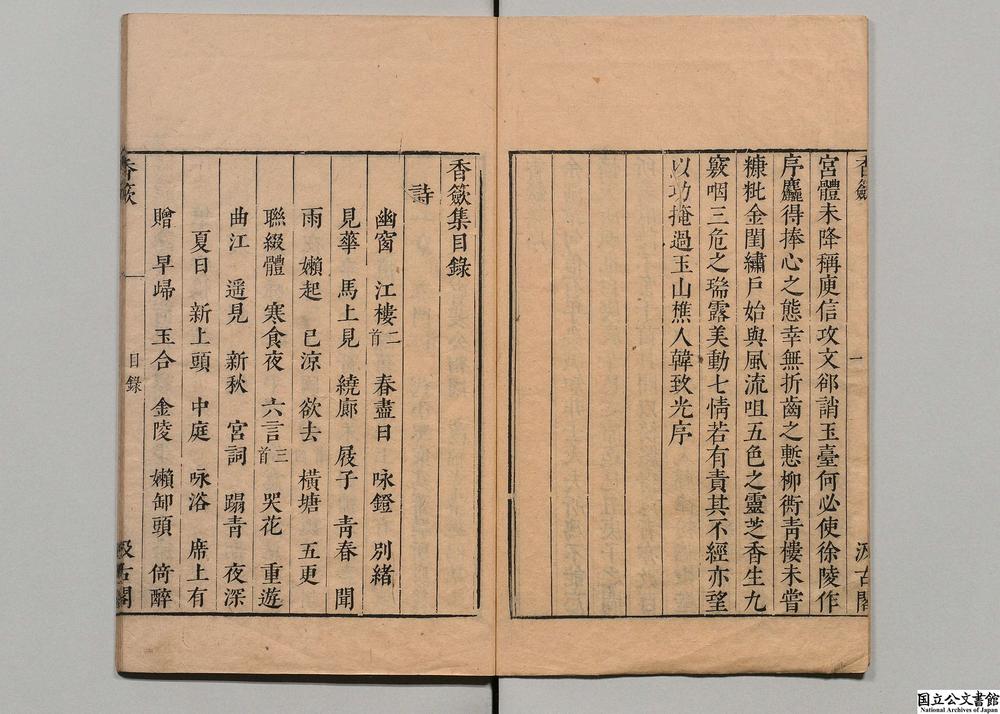 香籢
一
汲古閣
宮體未降稱庾信攻文郤誚玉臺何必使徐陵作
序麤得捧心之態幸無折齒之慙柳衖靑樓未嘗
糠粃金閨繡戸始與風流咀五色之靈芝香生九
竅咽三危之瑞露美動七情若有責其不經亦望
以功掩過玉山樵人韓致光序
香籢集目錄
詩
幽窗 江樓二首 春盡日 咏鐙 別緖
見蕐 馬上見 繞廊 屐子 靑春 聞
雨 嬾起 已涼 欲去 橫塘 五更
聯綴體 寒食夜 六言三首 哭花 重遊
曲江 遥見 新秋 宮詞 蹋青 夜深
夏日 新上頭 中庭 咏浴 席上有
贈 早歸 玉合 金陵 嬾卸頭 倚醉
香籢
目錄
汲古閣
国立公文書館
National Archives of Japan